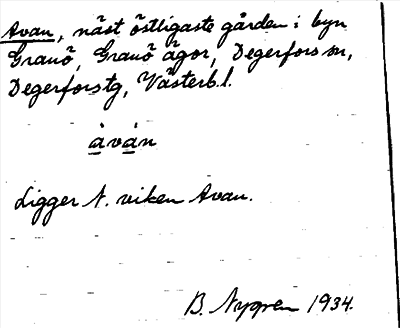 Avan, näst östligaste gården i byn
Granö, Granö ägor, Degerfors sn,
Degerforstg, Västerb.l.
àván
Ligger N. viken Avan.
B. Nygren 1934.